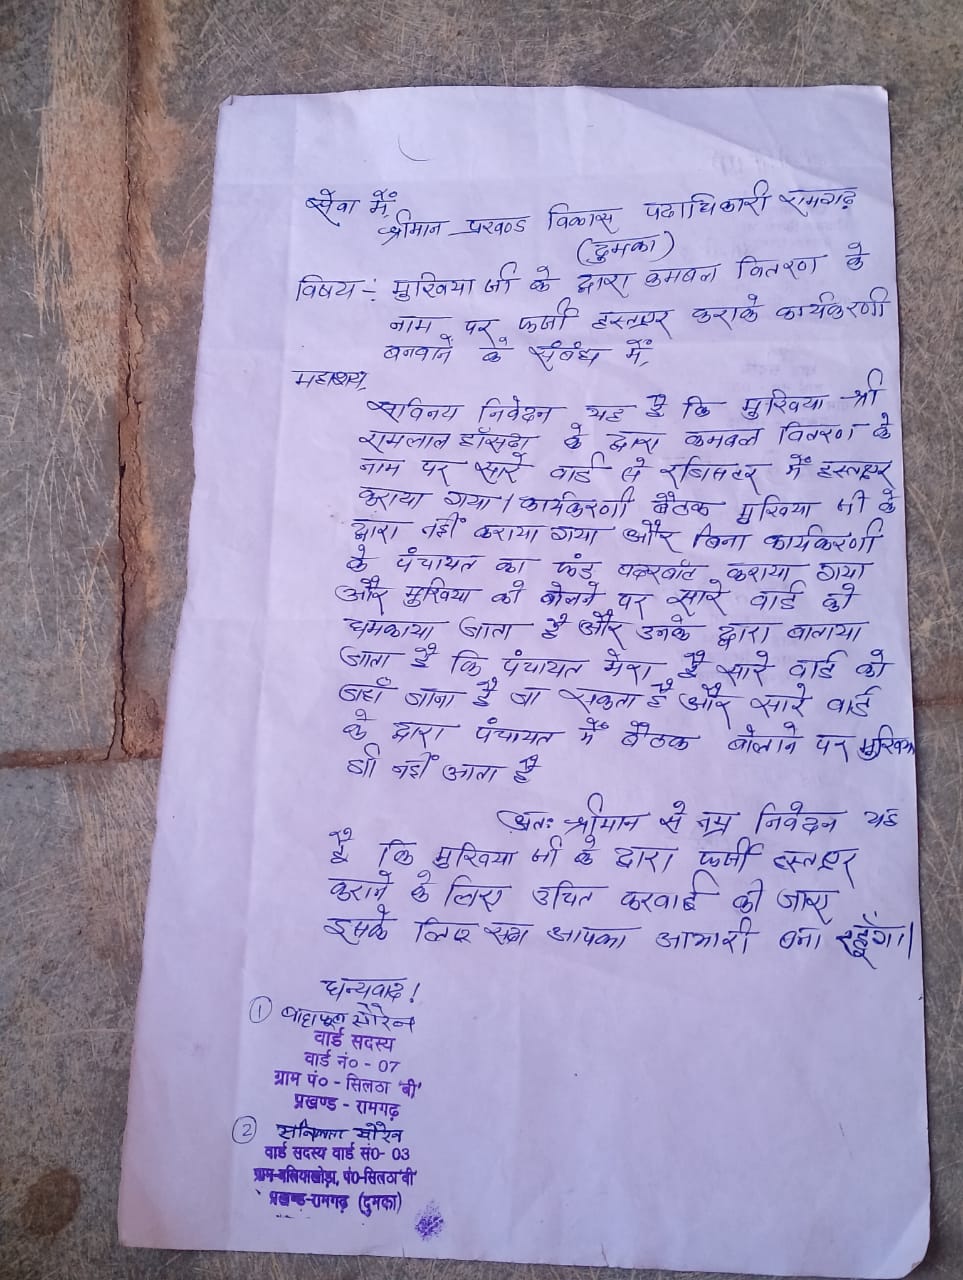 सेवा में,
श्रीमान प्रखण्ड विकास पदाधिकारी रामगढ़
(दुमका)
विषय -: मुखिया जी के द्वारा कमबल वितरण के
नाम पर फर्जी हस्ताक्षर कराके कार्यकरणी
बनवाने के संबंध में,
महाशय,
सविनय निवेदन यह है कि मुखिया श्री
रामलाल हाँसदा के द्वारा कमबल वितरण के
नाम पर सारे वार्ड से रजिसटर में हस्ताक्षर
कराया गया। कार्यकरणी बैठक मुखिया जी के
द्वारा नहीं कराया गया और बिना कार्यकरणी
के पंचायत का फंड कराया गया
और मुखिया को बोलने पर सारे वार्ड को
धमकाया जाता है और उनके द्वारा बाताया
जाता है कि पंचायत मेरा है सारे वार्ड को
जहाँ जाना है जा सकता है और सारे वार्ड
के द्वारा पंचायत में बैठक बोलाने पर मुखिया
जी नहीं आता है
अतः श्रीमान से नम्र निवेदन यह
है कि मुखिया जी के द्वारा फर्जी हस्ताक्षर
कराने के लिए उचित करवाई की जाए
इसके लिए सदा आपका आभारी बना रहूँगा।
धन्यवाद!
① सोरेन
वार्ड सदस्य
वार्ड नं० - 07
ग्राम पं० - सिलठा 'बी'
प्रखण्ड - रामगढ़
② सोरेन
वार्ड सदस्य वार्ड सं०- 03
ग्राम-बलियाखोड़ा, पं०-सिलठा'बी'
प्रखण्ड-रामगढ़ (दुमका)